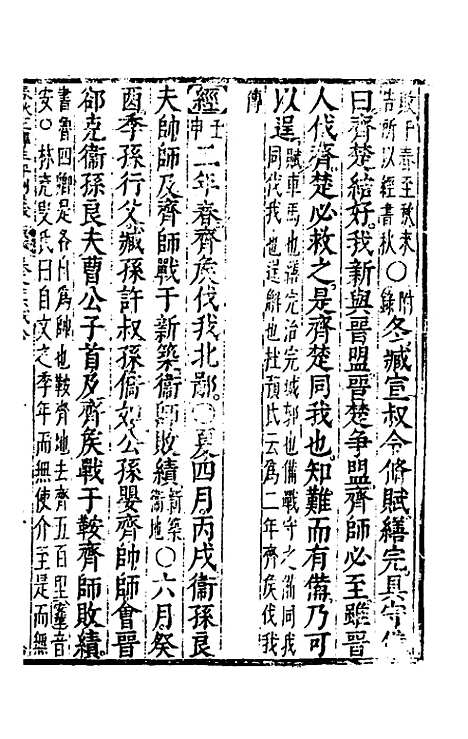 敗于
告所以經書秋○附錄冬臧宣叔令脩賦繕完具守備
曰齊楚結好我新與晉盟晉楚爭盟齊師必至雖晉
人伐齊楚必救之是齊楚同我也知難而有備乃可
以逞賦車馬也繕完治完城郭也備戰守之
同我伐我也逞解也杜預氏云爲二年齊矦伐我
傳
經壬申二年春齊矦伐我北鄙○夏四月丙戌衞孫良
夫帥師及齊師戰于新築衞師敗績新築衞地○六月癸
酉季孫行父臧孫許叔孫僑如公孫嬰齊帥師會晉
郤克衞孫良夫曹公子首及齊矦戰于鞍齊師敗績
書魯四卿是各自爲帥也鞍齊地去齊五百里鞍音
安○林氏曰自文之季年而無使介至是而無